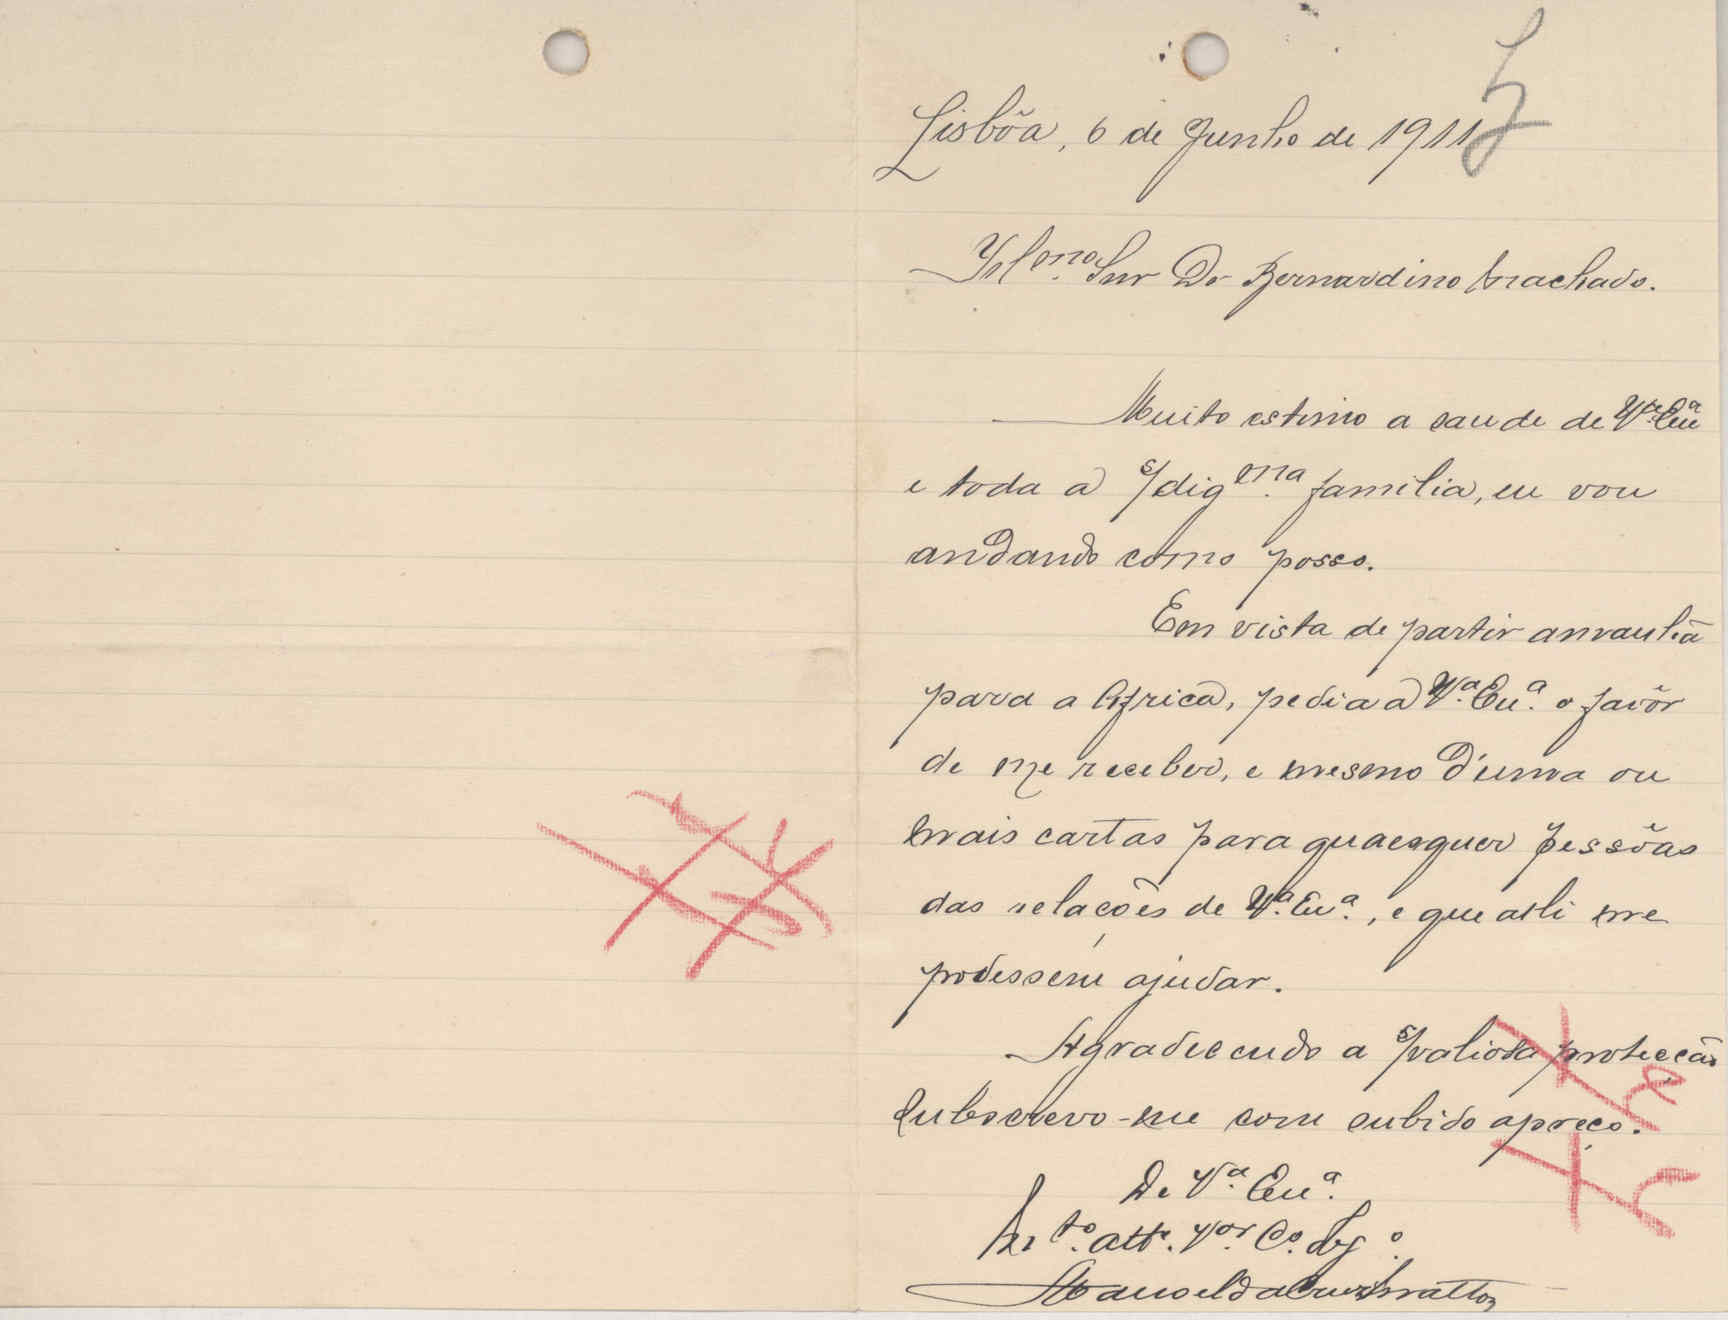 Lisbôa, 6 de Junho de 1911
Illmo. Snr Dr Bernardino Machado.
Muito estimo a saude de Va. Exa
e toda a s/ digma. familia, eu vou
andando como posso.
Em vista de partir amanhã
para a Africa, pedia a Va. Exa. o favôr
de me receber, e mesmo d'uma ou
mais cartas para quaesquer pessôas
das relações de Va. Exa., e que alli me
podessem ajudar.
Agradecendo a s/ valiosa protecção
Subscrevo-me com subido apreço.
De Va. Exa.
Mto. atto. Vor. Co. Obgo.
Manoel da Cruz Mattos